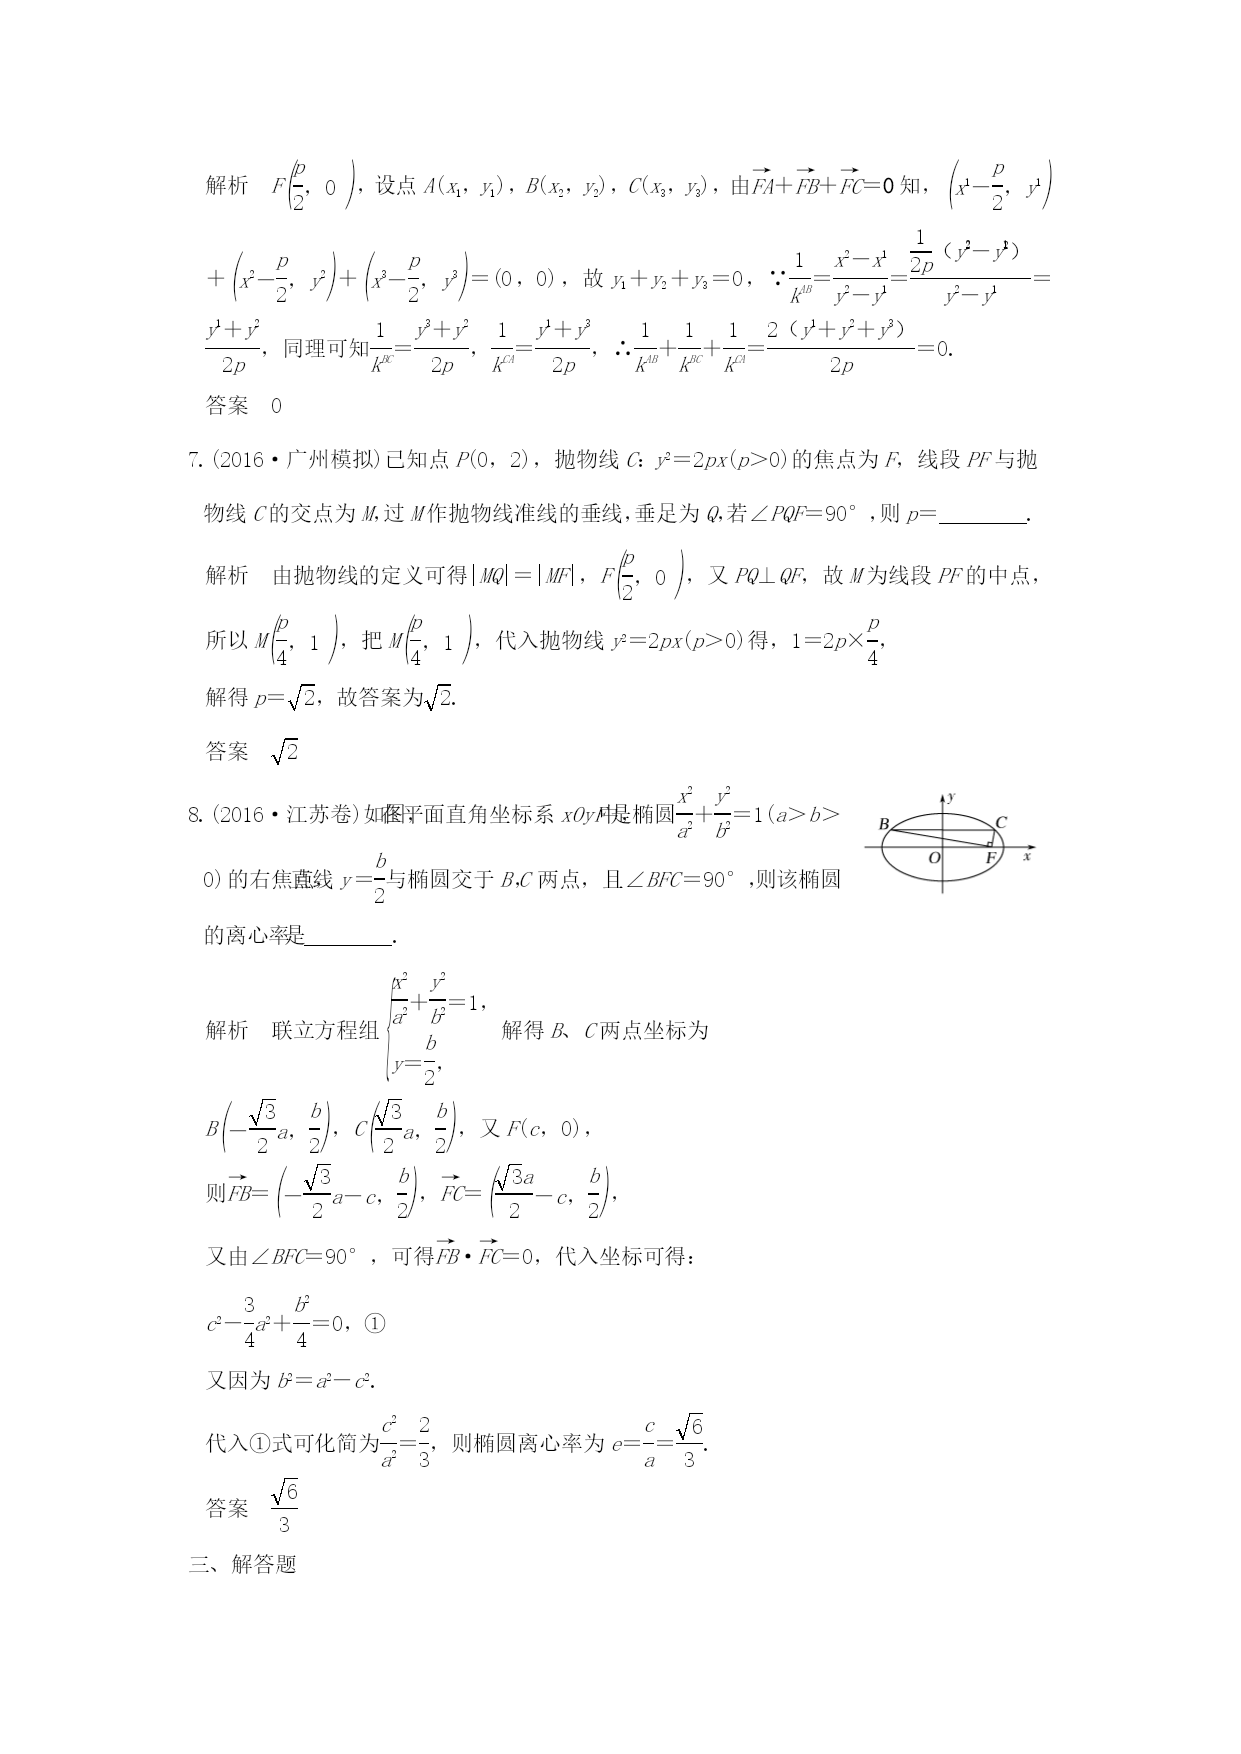 解析　F(p/2, 0), 设点 A(x₁, y₁), B(x₂, y₂), C(x₃, y₃), 由FA→+FB→+FC→=0 知, (x¹－p/2, y¹)
+(x²－p/2, y²)+(x³－p/2, y³)=(0, 0), 故 y₁+y₂+y₃=0, ∵1/kᴬᴮ=(x²－x¹)/(y²－y¹)=(1/2p（y²－y²）)/(y²－y¹)=
(y¹+y²)/2p, 同理可知1/kᴮᶜ=(y³+y²)/2p, 1/kᶜᴬ=(y¹+y³)/2p, ∴1/kᴬᴮ+1/kᴮᶜ+1/kᶜᴬ=2（y¹+y²+y³）/2p=0.
答案　0
7. (2016·广州模拟)已知点 P(0, 2), 抛物线 C: y²=2px(p>0)的焦点为 F, 线段 PF 与抛
物线 C 的交点为 M, 过 M 作抛物线准线的垂线, 垂足为 Q, 若∠PQF=90°, 则 p=________.
解析　由抛物线的定义可得|MQ|=|MF|, F(p/2, 0), 又 PQ⊥QF, 故 M 为线段 PF 的中点,
所以 M(p/4, 1), 把 M(p/4, 1), 代入抛物线 y²=2px(p>0)得, 1=2p×p/4,
解得 p=√2, 故答案为√2.
答案　√2
8. (2016·江苏卷)如图, 在平面直角坐标系 xOy 中, F 是椭圆x²/a²+y²/b²=1(a>b>
0)的右焦点, 直线 y=b/2与椭圆交于 B, C 两点, 且∠BFC=90°, 则该椭圆
的离心率是________.
y
B
C
O
F
x
解析　联立方程组{x²/a²+y²/b²=1, y=b/2, 解得 B、C 两点坐标为
B(－√3/2a, b/2), C(√3/2a, b/2), 又 F(c, 0),
则FB→=(－√3/2a－c, b/2), FC→=(√3a/2－c, b/2),
又由∠BFC=90°, 可得FB→·FC→=0, 代入坐标可得:
c²－3/4a²+b²/4=0, ①
又因为 b²=a²－c².
代入①式可化简为c²/a²=2/3, 则椭圆离心率为 e=c/a=√6/3.
答案　√6/3
三、解答题